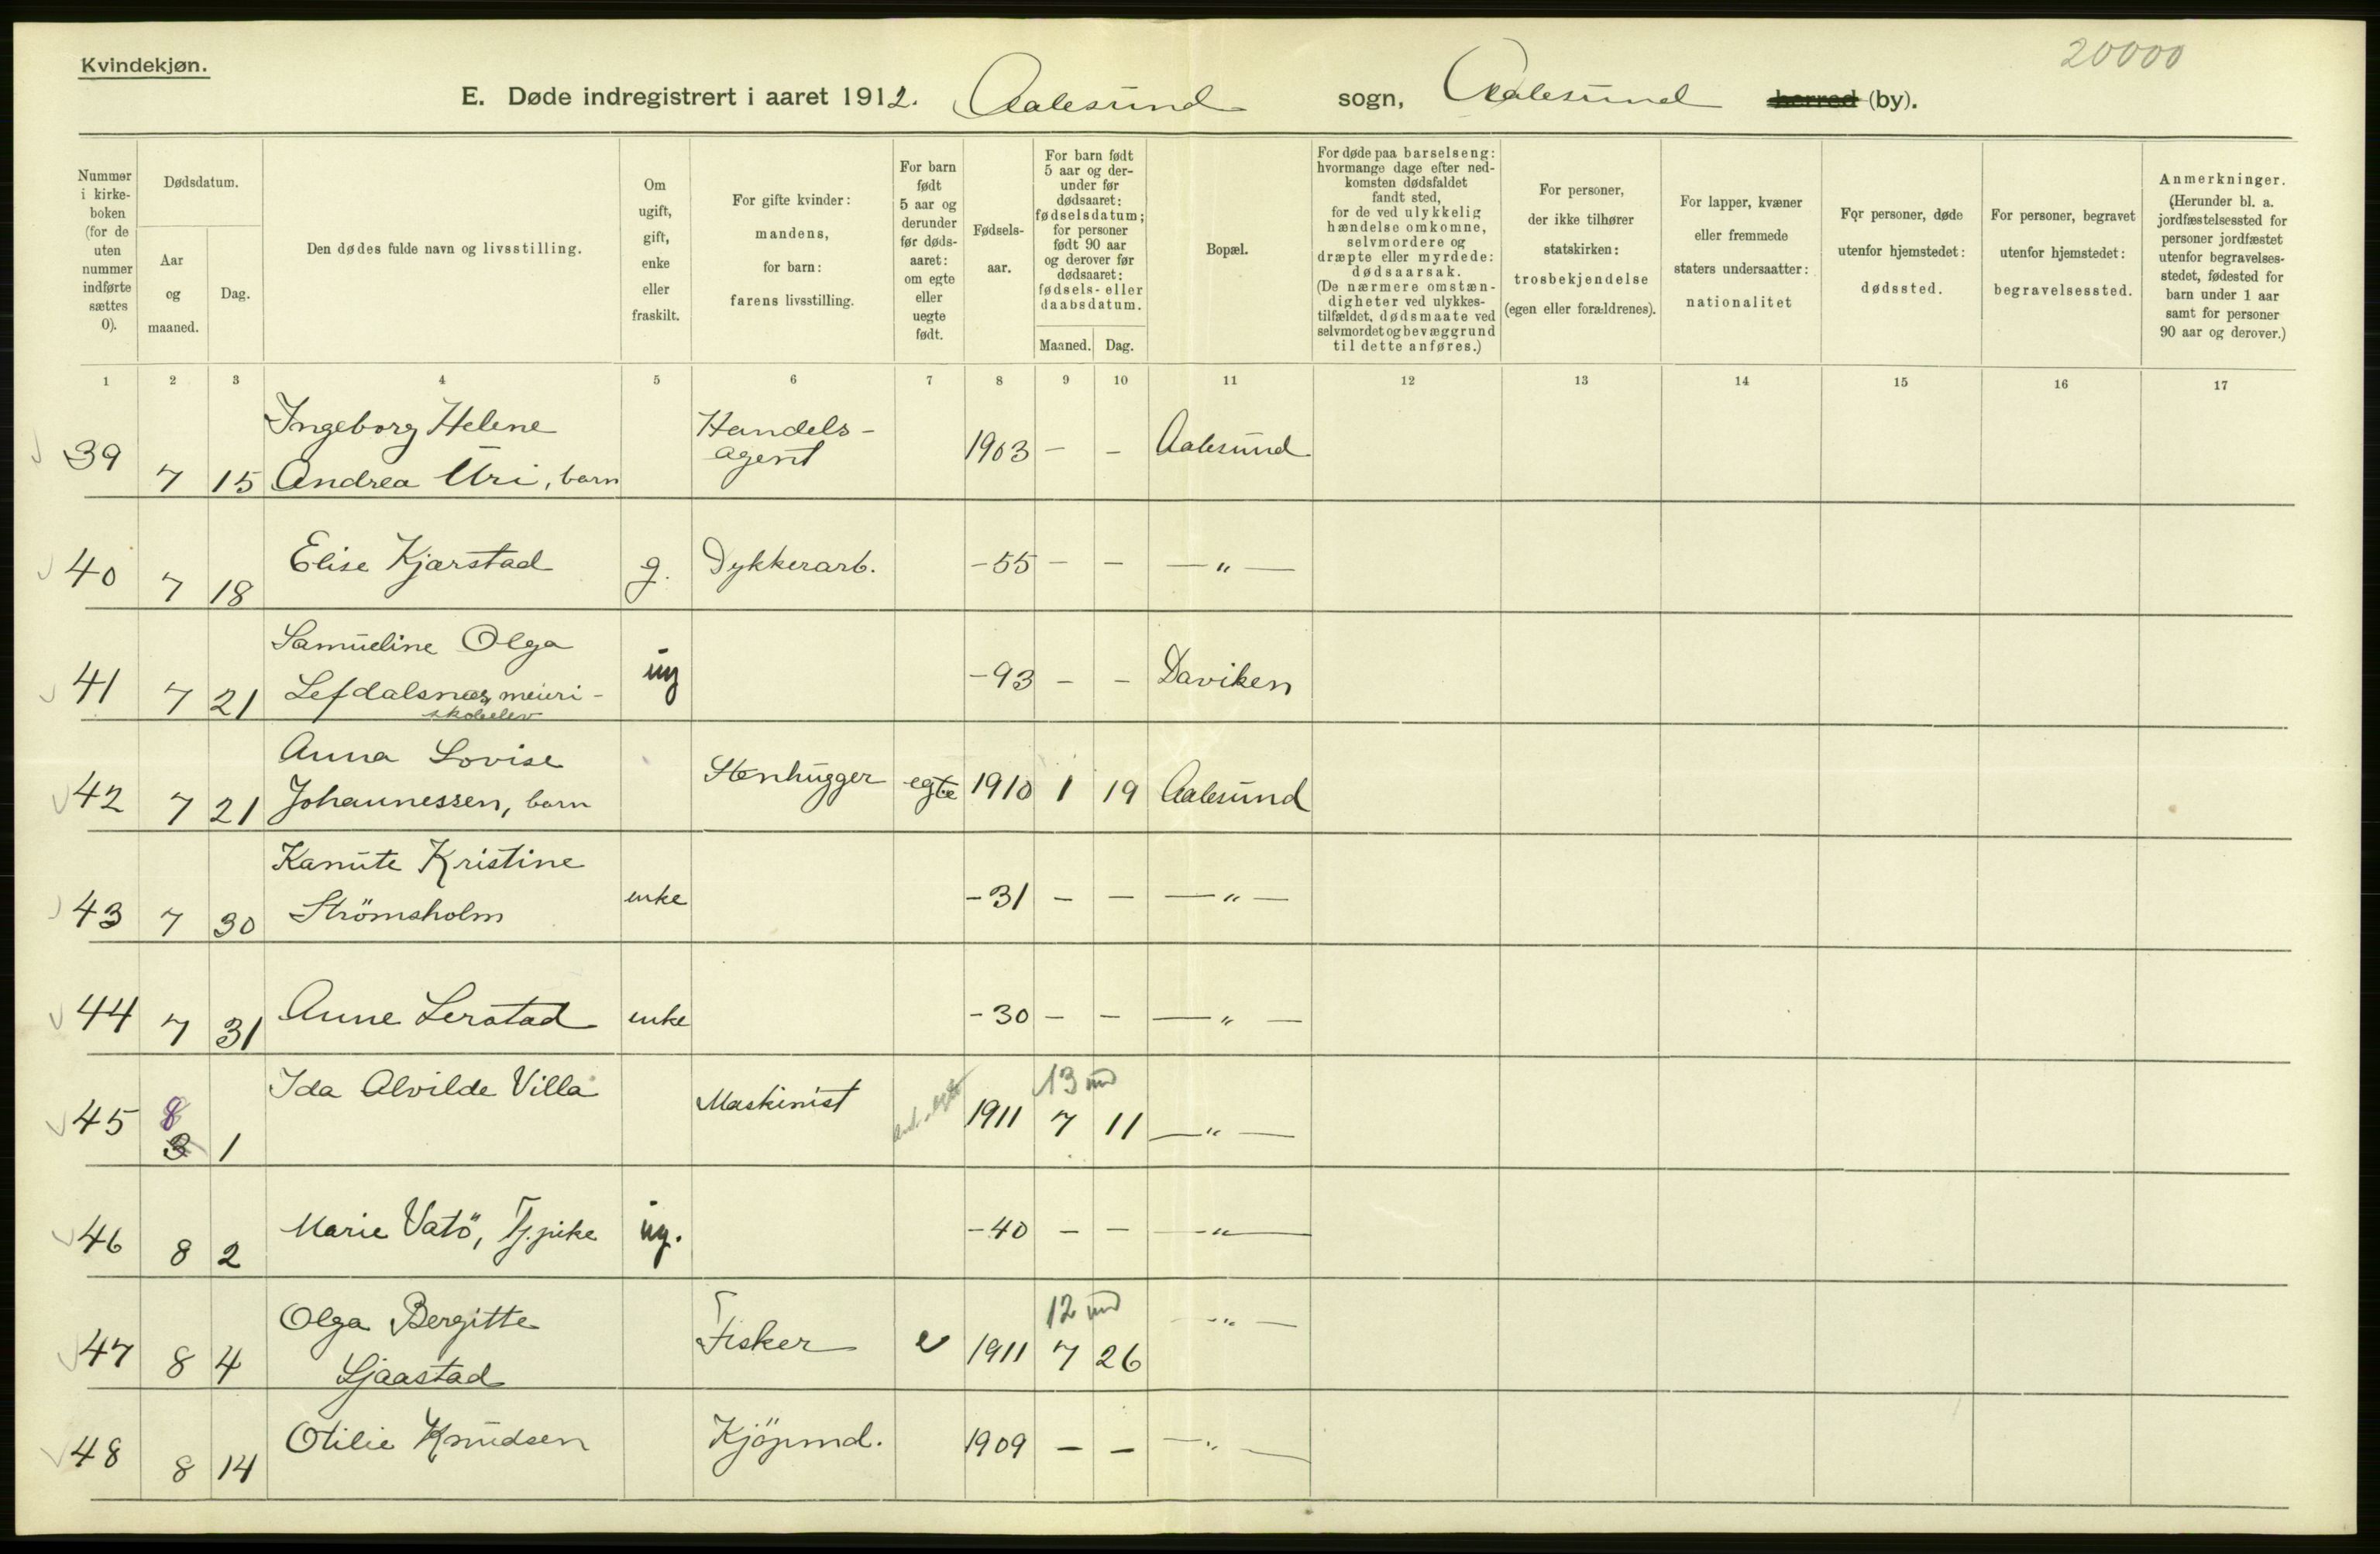 Kvindekjøn.
20000
E. Døde indregistrert i aaret 1912. Aalesund sogn, Aalesund herred (by).
Nummer i kirke-boken (for de uten nummer indførte sættes 0).
Dødsdatum.
Aar og maaned.
Dag.
Den dødes fulde navn og livsstilling.
Om ugift, gift, enke eller fraskilt.
For gifte kvinder: mandens, for barn: farens livsstilling.
For barn født 5 aar og derunder før døds-aaret: om egte eller uegte født.
Fødsels-aar.
For barn født 5 aar og der-under før dødsaaret: fødselsdatum; for personer født 90 aar og derover før dødsaaret: fødsels- eller daabsdatum.
Maaned. Dag.
Bopæl.
For døde paa barselseng: hvormange dage efter ned-komsten dødsfaldet fandt sted, for de ved ulykkelig hændelse omkomne, selvmordere og dræpte eller myrdede: dødsaarsak. (De nærmere omstæn-digheter ved ulykkes-tilfældet, dødsmaate ved selvmordet og bevæggrund til dette anføres.)
For personer, der ikke tilhører statskirken: trosbekjendelse (egen eller forældrenes).
For lapper, kvæner eller fremmede staters undersaatter: nationalitet
For personer, døde utenfor hjemstedet: dødssted.
For personer, begravet utenfor hjemstedet: begravelsessted.
Anmerkninger. (Herunder bl. a. jordfæstelsessted for personer jordfæstet utenfor begravelses-stedet, fødested for barn under 1 aar samt for personer 90 aar og derover.)
1 2 3 4 5 6 7 8 9 10 11 12 13 14 15 16 17
39 7 15 Ingeborg Helene Andrea Uri, barn Handels-agent 1903 - - Aalesund
40 7 18 Elise Kjærstad g. Dykkerarb. -55 - - —"—
41 7 21 Samueline Olga Lefdalsnæs, meieri-skoleelev ug -93 - - Daviken
42 7 21 Anna Lovise Johannessen, barn Stenhugger egte 1910 1 19 Aalesund
43 7 30 Kanute Kristine Strömsholm enke -31 - - —"—
44 7 31 Anne Lerstad enke -30 - - —"—
45 8 3 1 Ida Alvilde Villa Maskinist 1911 13 md 7 11 —"—
46 8 2 Marie Vatö, Tj.pike ug. -40 - - —"—
47 8 4 Olga Bergitte Sjaastad Fisker e 1911 12 md 7 26 —"—
48 8 14 Otilie Knudsen Kjöpmd. 1909 - - —"—